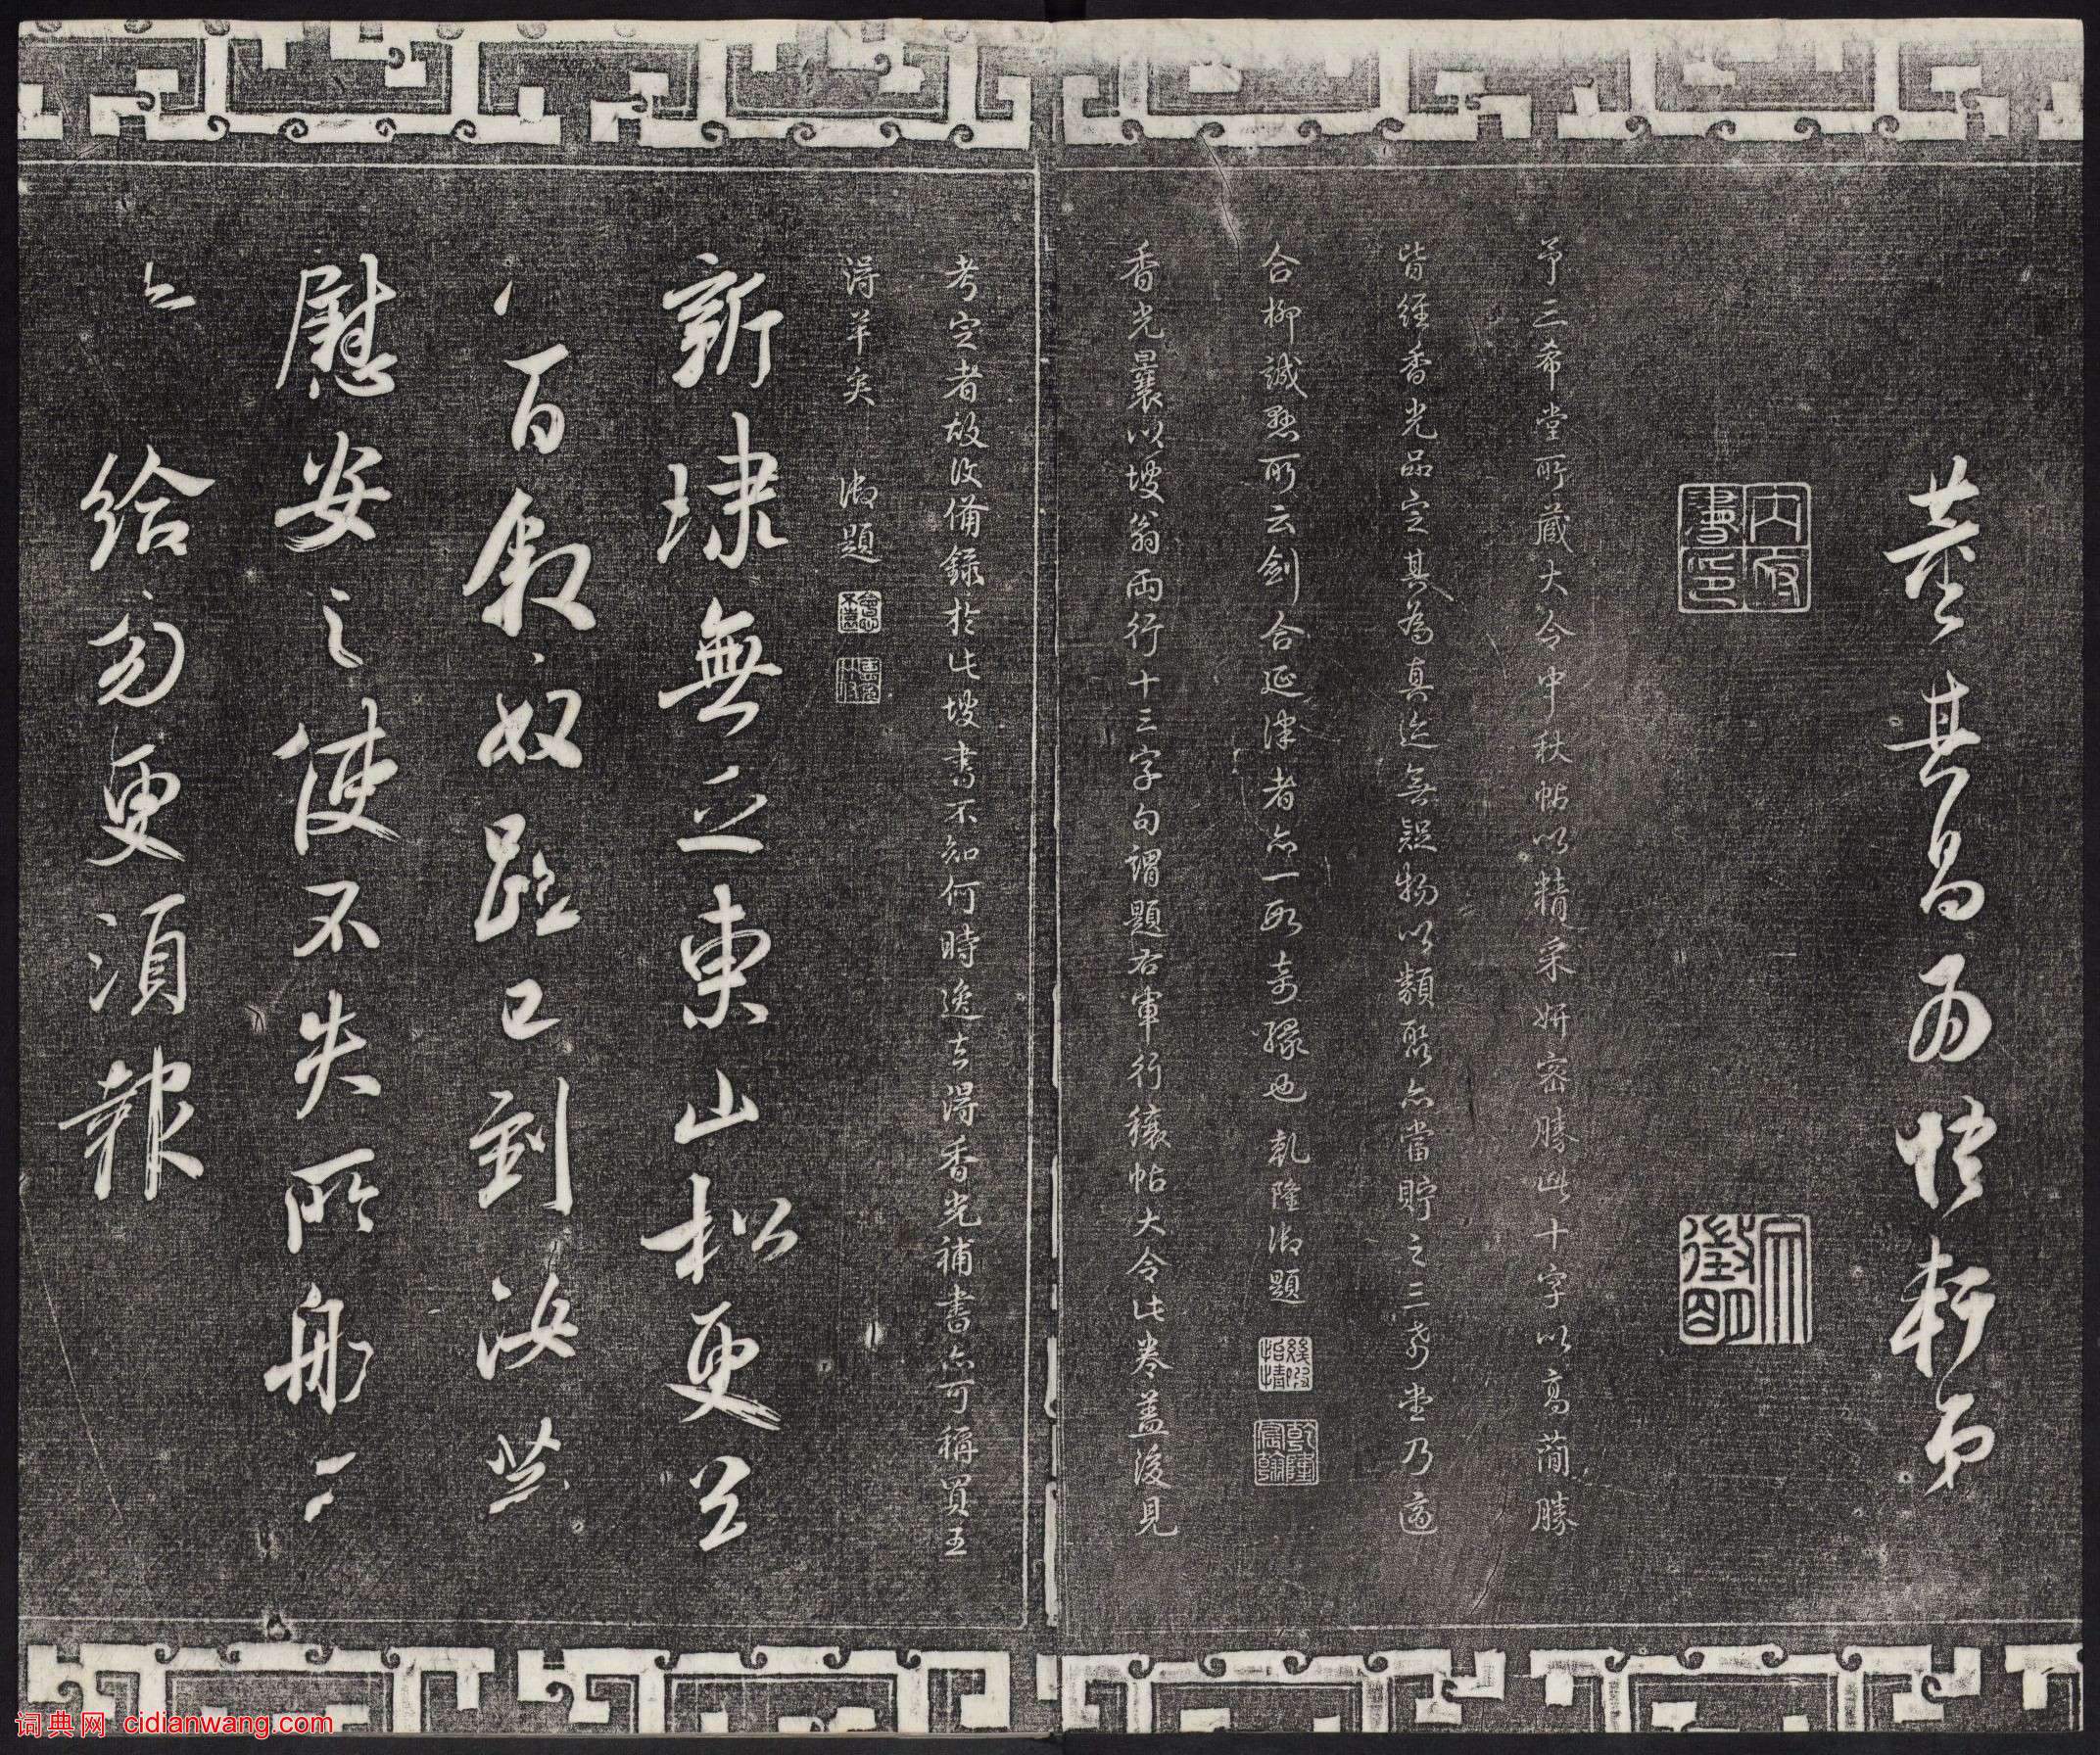 董其昌為悟軒弟
內府書印
天後明
予三希堂所藏大令中秋帖以精采妍密勝此十字以高簡勝
皆經香光品定其為真迹無疑物以類聚亦當貯之三希堂乃適
合柳誠懸所云劍合延津者亦一段奇緣也乾隆御題
乾隆宸翰
香光曩以坡翁兩行十三字句謂題右軍行穰帖大令此卷蓋後見
考定者故改備錄於此坡書不知何時逸去得香光補書亦可稱買王
得羊矣 御題
新埭無乏東山松更送
八百敘奴跛已到汝共
慰安之使不失所舟二
亡給勿更須報
词典网 cidianwang.com